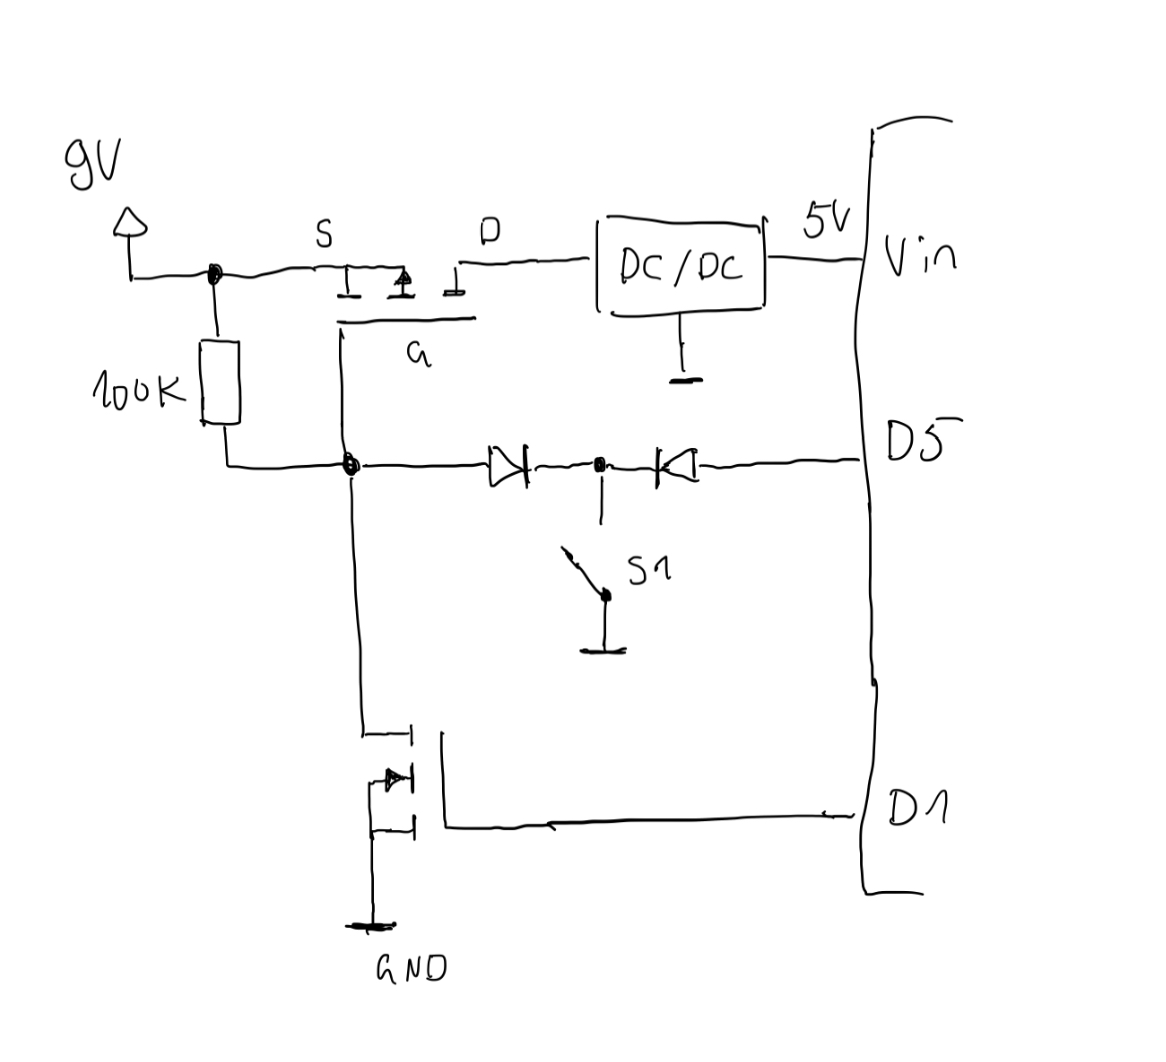 9V
S
D
5V
DC/DC
Vin
G
100K
D5
S1
D1
GND